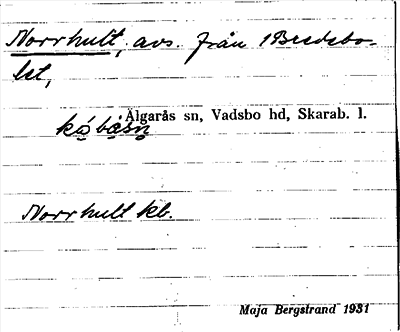 Norrhult, avs. från Bredsbo-
let,
Älgarås sn, Vadsbo hd, Skarab. l.
Norrhult kb.
Maja Bergstrand 1931